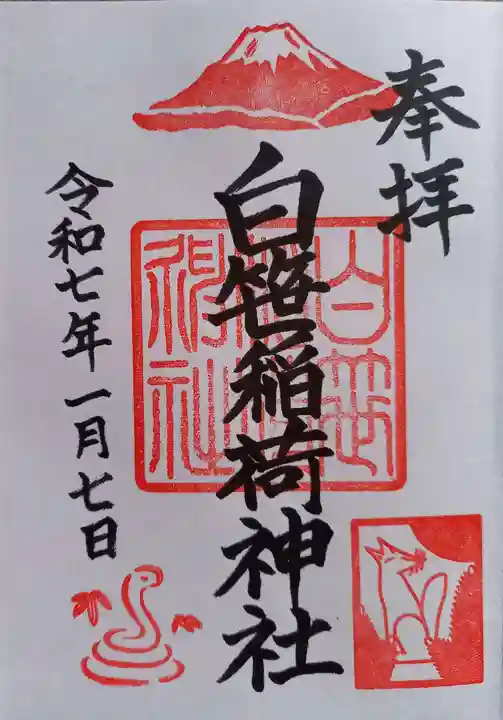 奉拝
白笹稲荷神社
白笹稲荷神社
令和七年一月七日